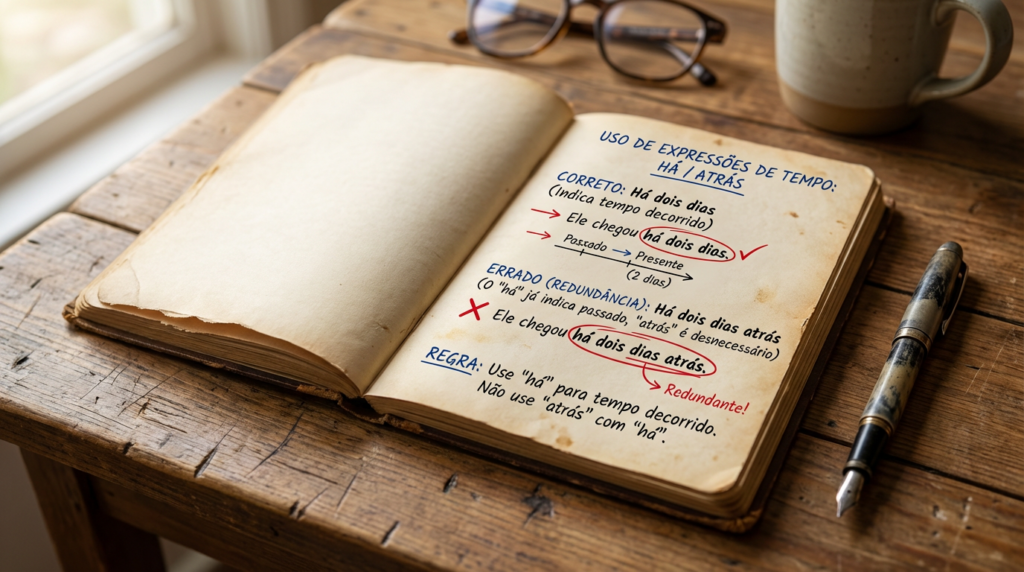 USO DE EXPRESSÕES DE TEMPO:
HÁ / ATRÁS
CORRETO: Há dois dias
(Indica tempo decorrido)
→ Ele chegou há dois dias. ✓
→ Passado → Presente
(2 dias)
ERRADO (REDUNDÂNCIA): Há dois dias atrás
(O "há" já indica passado, "atrás" é desnecessário)
✗ Ele chegou há dois dias atrás.
Redundante!
REGRA: Use "há" para tempo decorrido.
Não use "atrás" com "há".